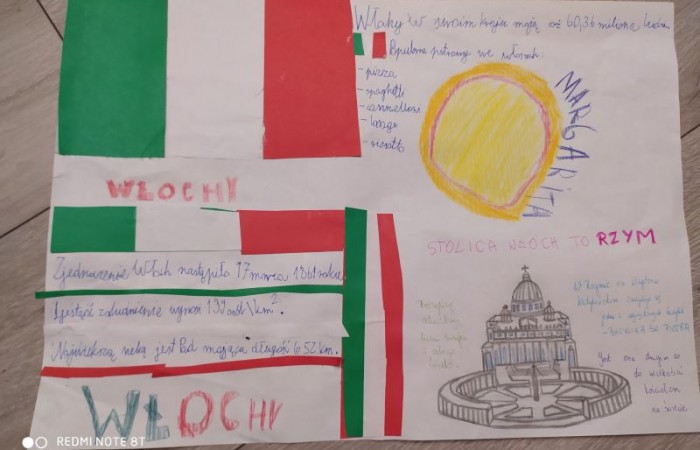 Włochy w swoim kraju mają aż 60,36 miliona
Popularne potrawy we włoszech:
- pizza
- spaghetti
- cannelloni
- lasagne
- risotto
MARGARITA
WŁOCHY
STOLICA WŁOCH TO RZYM
Zjednoczenie Włoch nastąpiło 17 marca 1861 roku.
Gęstość zaludnienia wynosi 199 osób/km².
Największą rzeką jest Pad mająca długość 652 km.
WŁOCHY
W Rzymie
znajduje się
- BAZYLIKA
Jest ona druga co
do wielkości
kościołem
na świecie
REDMI NOTE 8T